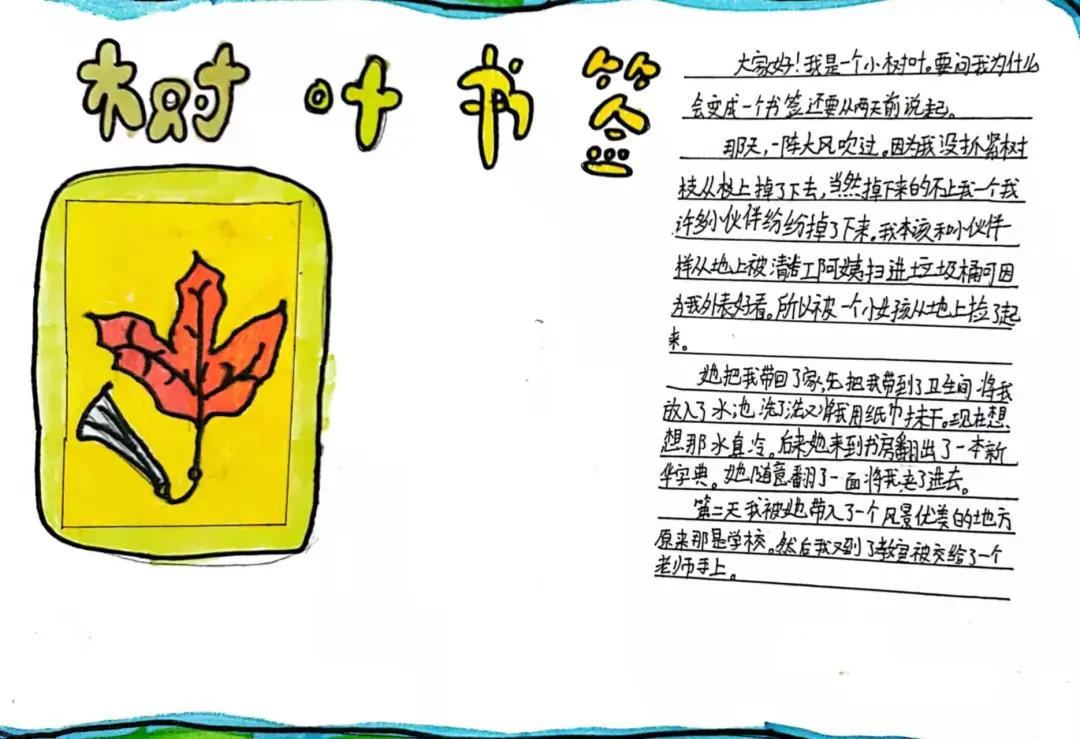 树叶书签
大家好！我是一个小树叶。要问我为什么
会变成一个书签还要从两天前说起。
那天，一阵大风吹过。因为我没抓紧树
枝从枝上掉了下去，当然掉下来的不止我一个我
许多小伙伴纷纷掉了下来。我本该和小伙伴一
样从地上被清洁工阿姨扫进垃圾桶可因
为我外表好看。所以被一个小女孩从地上捡了起
来。
她把我带回了家，先把我带到了卫生间将我
放入了水池洗了洗又将我用纸巾抹干。现在想
想那水真冷。后来她来到书房翻出了一本新
华字典。她随意翻了一面将我夹了进去。
第二天我被她带入了一个风景优美的地方
原来那是学校。然后我又到了教室被交给了一个
老师手上。